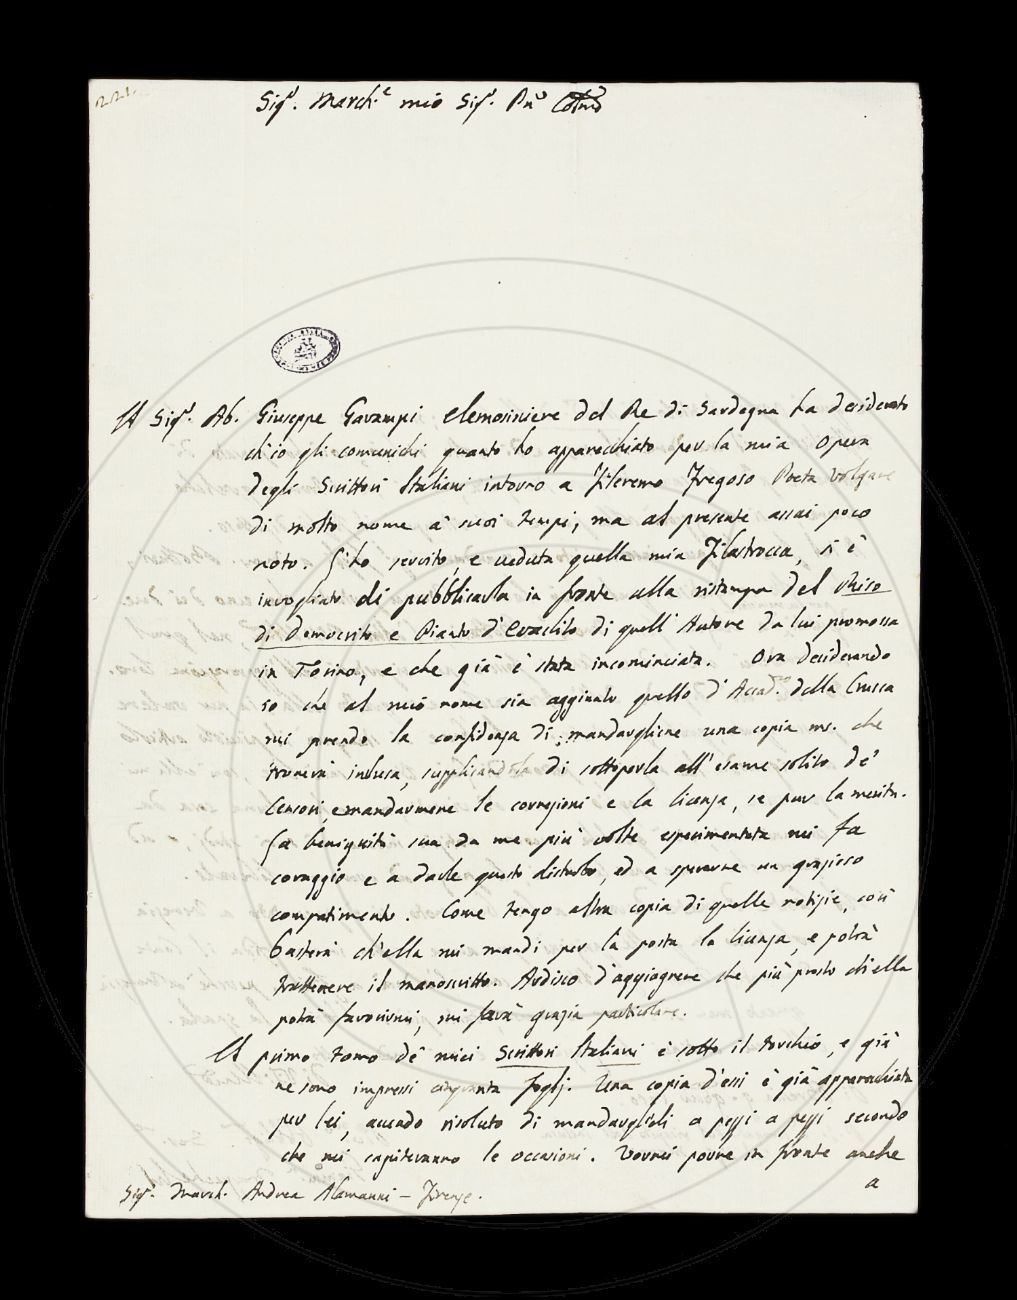 Sigr. March.e mio Sigr. Pne
Il Sigr. Ab. Giuseppe Gavampi elemosiniere del Re di Sardegna ha desiderato
ch'io gli comunichi quanto ho apparecchiato per la mia opera
degli Scrittori Italiani intorno a Fileremo Fregoso Poeta volgare
di molto nome a' suoi tempi, ma al presente assai poco
noto. L'ho servito, e veduta quella mia Filastrocca, si è
invogliato di pubblicarla in fronte alla ristampa del Riso
di Democrito e Pianto d'Eraclito di quell'Autore da lui promossa
in Torino, e che già è stata incominciata. Ora desiderando
io che al mio nome sia aggiunto quello d'Accad.co della Crusca
mi prendo la confidenza di mandargliene una copia ms. che
troverà inclusa, supplicandola di sottoporla all'esame solito de'
Censori, e mandarmene le correzioni e la licenza, se pur la merita.
La benignità sua da me più volte esperimentata mi fa
coraggio e a darle questo disturbo, ed a sperarne un grazioso
compatimento. Come tengo altra copia di quelle notizie, così
basterà ch'ella mi mandi per la posta la licenza, e potrà
trattenere il manoscritto. Ardisco d'aggiognere che più presto ch'ella
potrà favorirmi, mi farà grazia particolare.
Il primo tomo de' miei Scrittori Italiani è sotto il torchio, e già
ne sono impressi cinquanta foglj. Una copia d'essi è già apparecchiata
per lei, avendo risoluto di mandarglieli a pezzi a pezzi secondo
che mi capiteranno le occasioni. Vorrei porre in fronte anche
a
Sigr. March. Andrea Alamanni - Firenze.